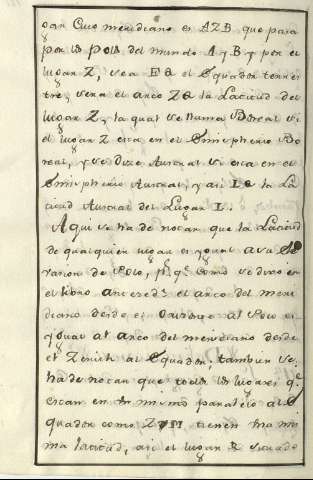 gar Cuio meridiano es AZB que pasa
por los Polos del mundo A y B y por el
lugar Z, sea EQ el Equador terres
tre, sera el arco ZQ la Latitud del
lugar Z, la qual se llama Boreal si
el lugar Z esta en el Emispherio Bo
real, y se dize Austral si esta en el
Emispherio Austral, y asi LQ la La
titud Austral del Lugar L.
Aqui se ha de notar que la Latitud
de qualquier lugar es ygual a su Ele
vazion de Polo, pr. qe. como se dixo en
el libro anteceds. el arco del meri
diano desde el Orizonte al Polo es
ygual al arco del meridiano desde
el Zenith al Equador, tambien se
ha de notar que todos los lugares qe.
estan en un mismo paralelo al E
quador como Z y M tienen una mis
ma latitud, asi el lugar R situado